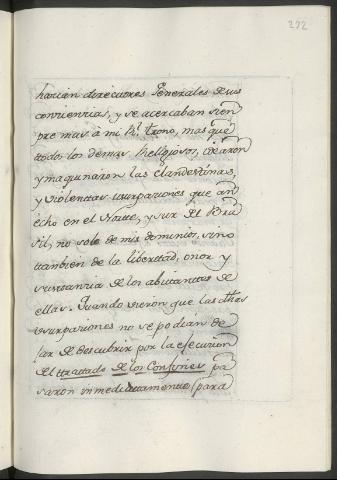 272
hacian directores Generales de sus
conciencias, y se acercaban siem
pre mas à mi Rl. trono, mas que
ttodo los demas Religiosos, idearon
y maquinaron las Clandestinas,
y violenttas usurpaciones que an
echo en el Norte, y sur del Bra
sil, no solo de mis dominios, sino
ttambien de la liberttad, onor y
sustancia de los abitanttes de
ellas. Quando vieron que las dhas
usurpaciones no se podian de
jar de descubrir por la ejecucion
del trattado de los Confines pa
saron inmediattamente (para